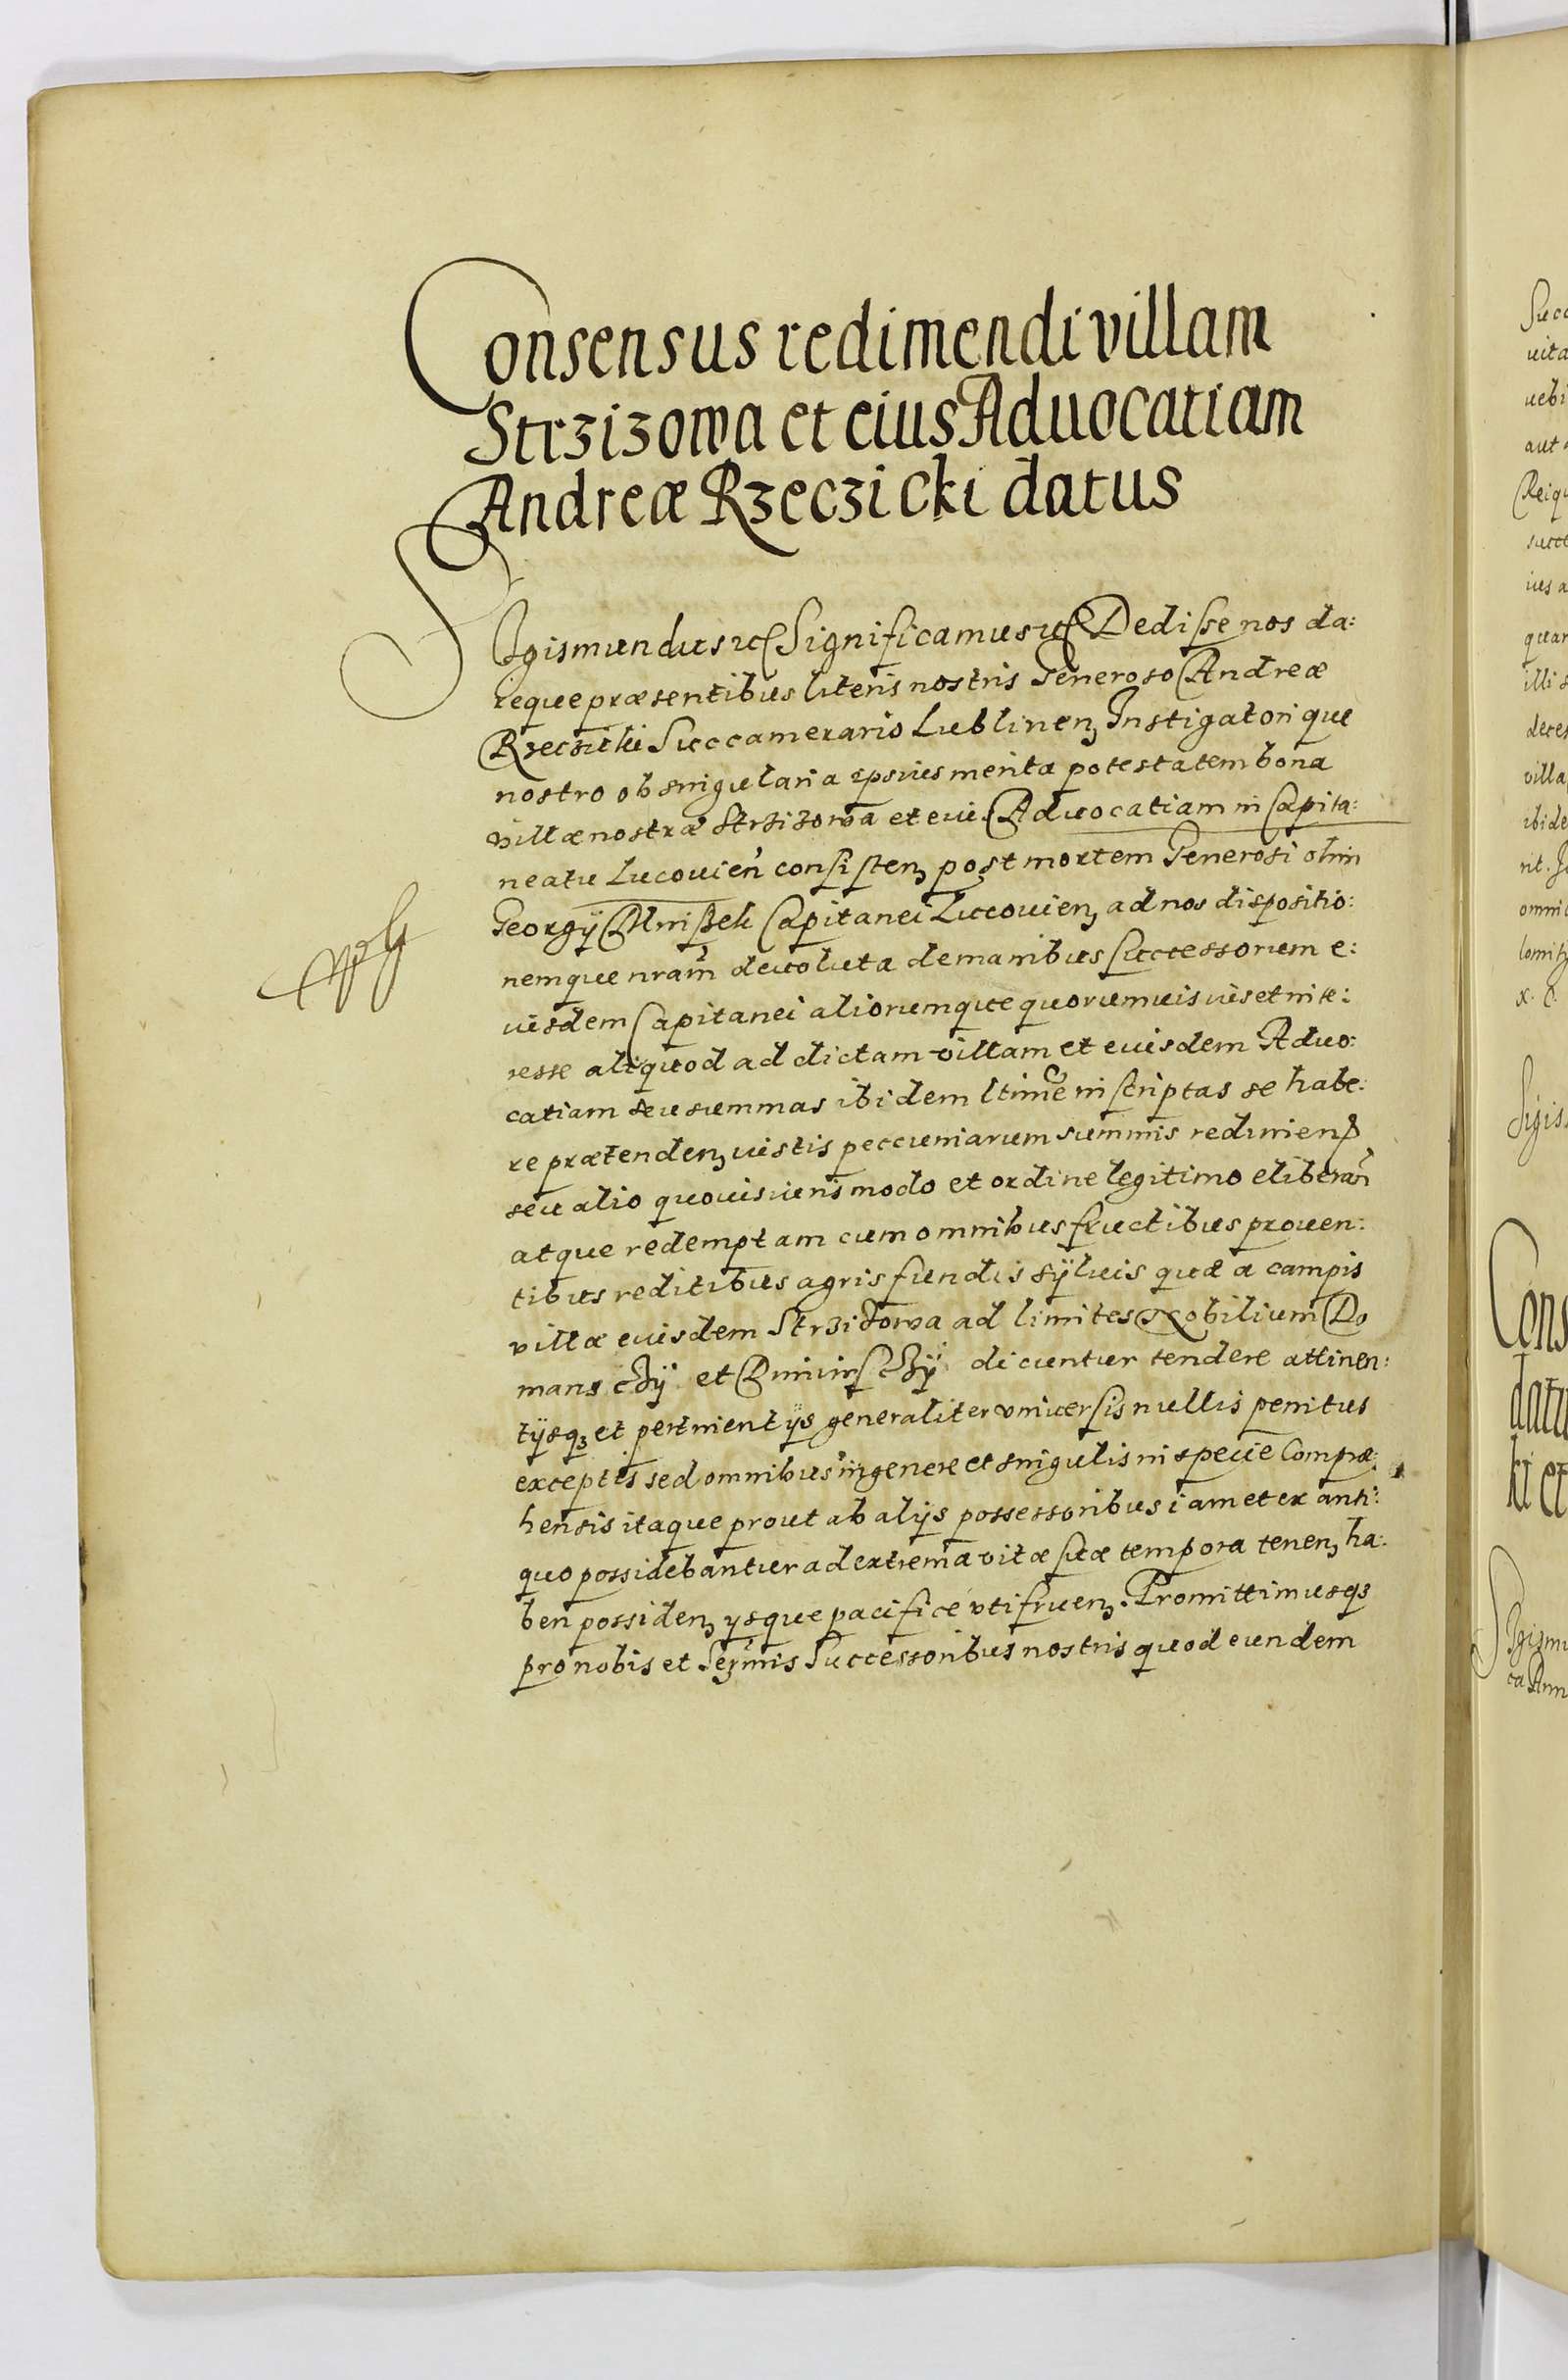 Consensus redimendi villam
Strzizowa et eius Aduocatiam
Andreæ Rzeczicki datus
Sigismundus etc Significamus etc Dedisse nos da:
reque præsentibus literis nostris Generoso Andreæ
Rzeczicki Succamerario Lublinenȝ Instigatorique
nostro ob singularia ipsius merita potestatem bona
villæ nostræ Strzizowa et eius Aduocatiam in Capita:
neatu Lucouien consistenȝ post mortem Generosi olim
Georgÿ Mnißek Capitanei Lucouienȝ ad nos dispositio:
nemque nram deuoluta de manibus successorum e:
iusdem Capitanei aliorumque quorumuis ius et inte:
resse aliquod ad dictam villam et eiusdem Aduo:
catiam seu summas ibidem ltime inscriptas se habe:
re prætendenȝ iustis pecuniarum summis redimenȝ
seu alio quouis iuris modo et ordine legitimo eliberan
atque redemptam cum omnibus fructibus prouen:
tibus reditibus agris fundis sÿluis quæ a campis
villæ eiusdem Strzizowa ad limites Nobilium Do
manschÿ et dicuntur tendere attinen:
tÿsqȝ et pertinentÿs generaliter vniuersis nullis penitus
exceptis sed omnibus in genere et singulis in specie Compræ:
hensis itaque prout ab alÿs possessoribus iam et ex anti:
quo possidebantur ad extrema vitæ suæ tempora tenenȝ ha:
ben possidenȝ ysque pacificé vtifruenȝ. Promittimusqȝ
pro nobis et Serrmis Successoribus nostris quod eundem